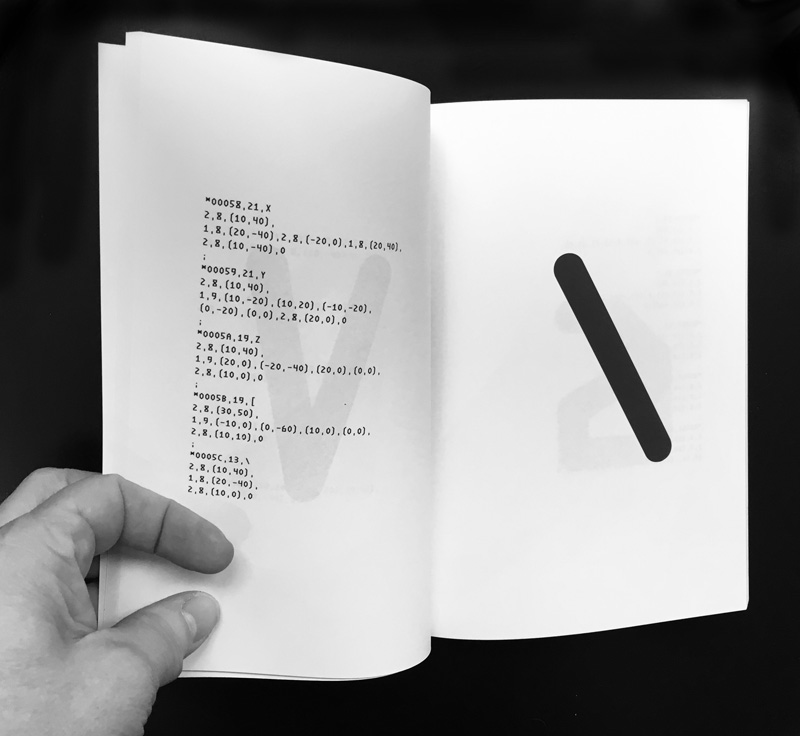 *00058,21,X
2,8,(10,40),
1,8,(20,-40),2,8,(-20,0),1,8,(20,40),
2,8,(10,-40),0
;
*00059,21,Y
2,8,(10,40),
1,9,(10,-20),(10,20),(-10,-20),
(0,-20),(0,0),2,8,(20,0),0
;
*0005A,19,Z
2,8,(10,40),
1,9,(20,0),(-20,-40),(20,0),(0,0),
2,8,(10,0),0
;
*0005B,19,[
2,8,(30,50),
1,9,(-10,0),(0,-60),(10,0),(0,0),
2,8,(10,10),0
;
*0005C,13,\
2,8,(10,40),
1,8,(20,-40),
2,8,(10,0),0
\